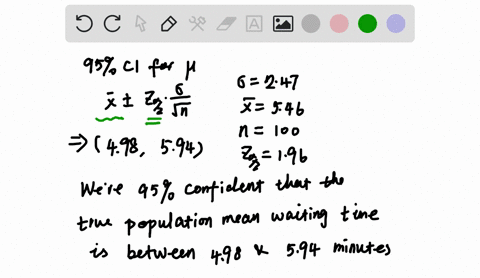 95% CI for μ
x̄ ± Z_{α/2} · σ/√n
⇒ (4.98, 5.94)
σ = 2.47
x̄ = 5.46
n = 100
Z_{α/2} = 1.96
We're 95% confident that the
true population mean waiting time
is between 4.98 & 5.94 minutes